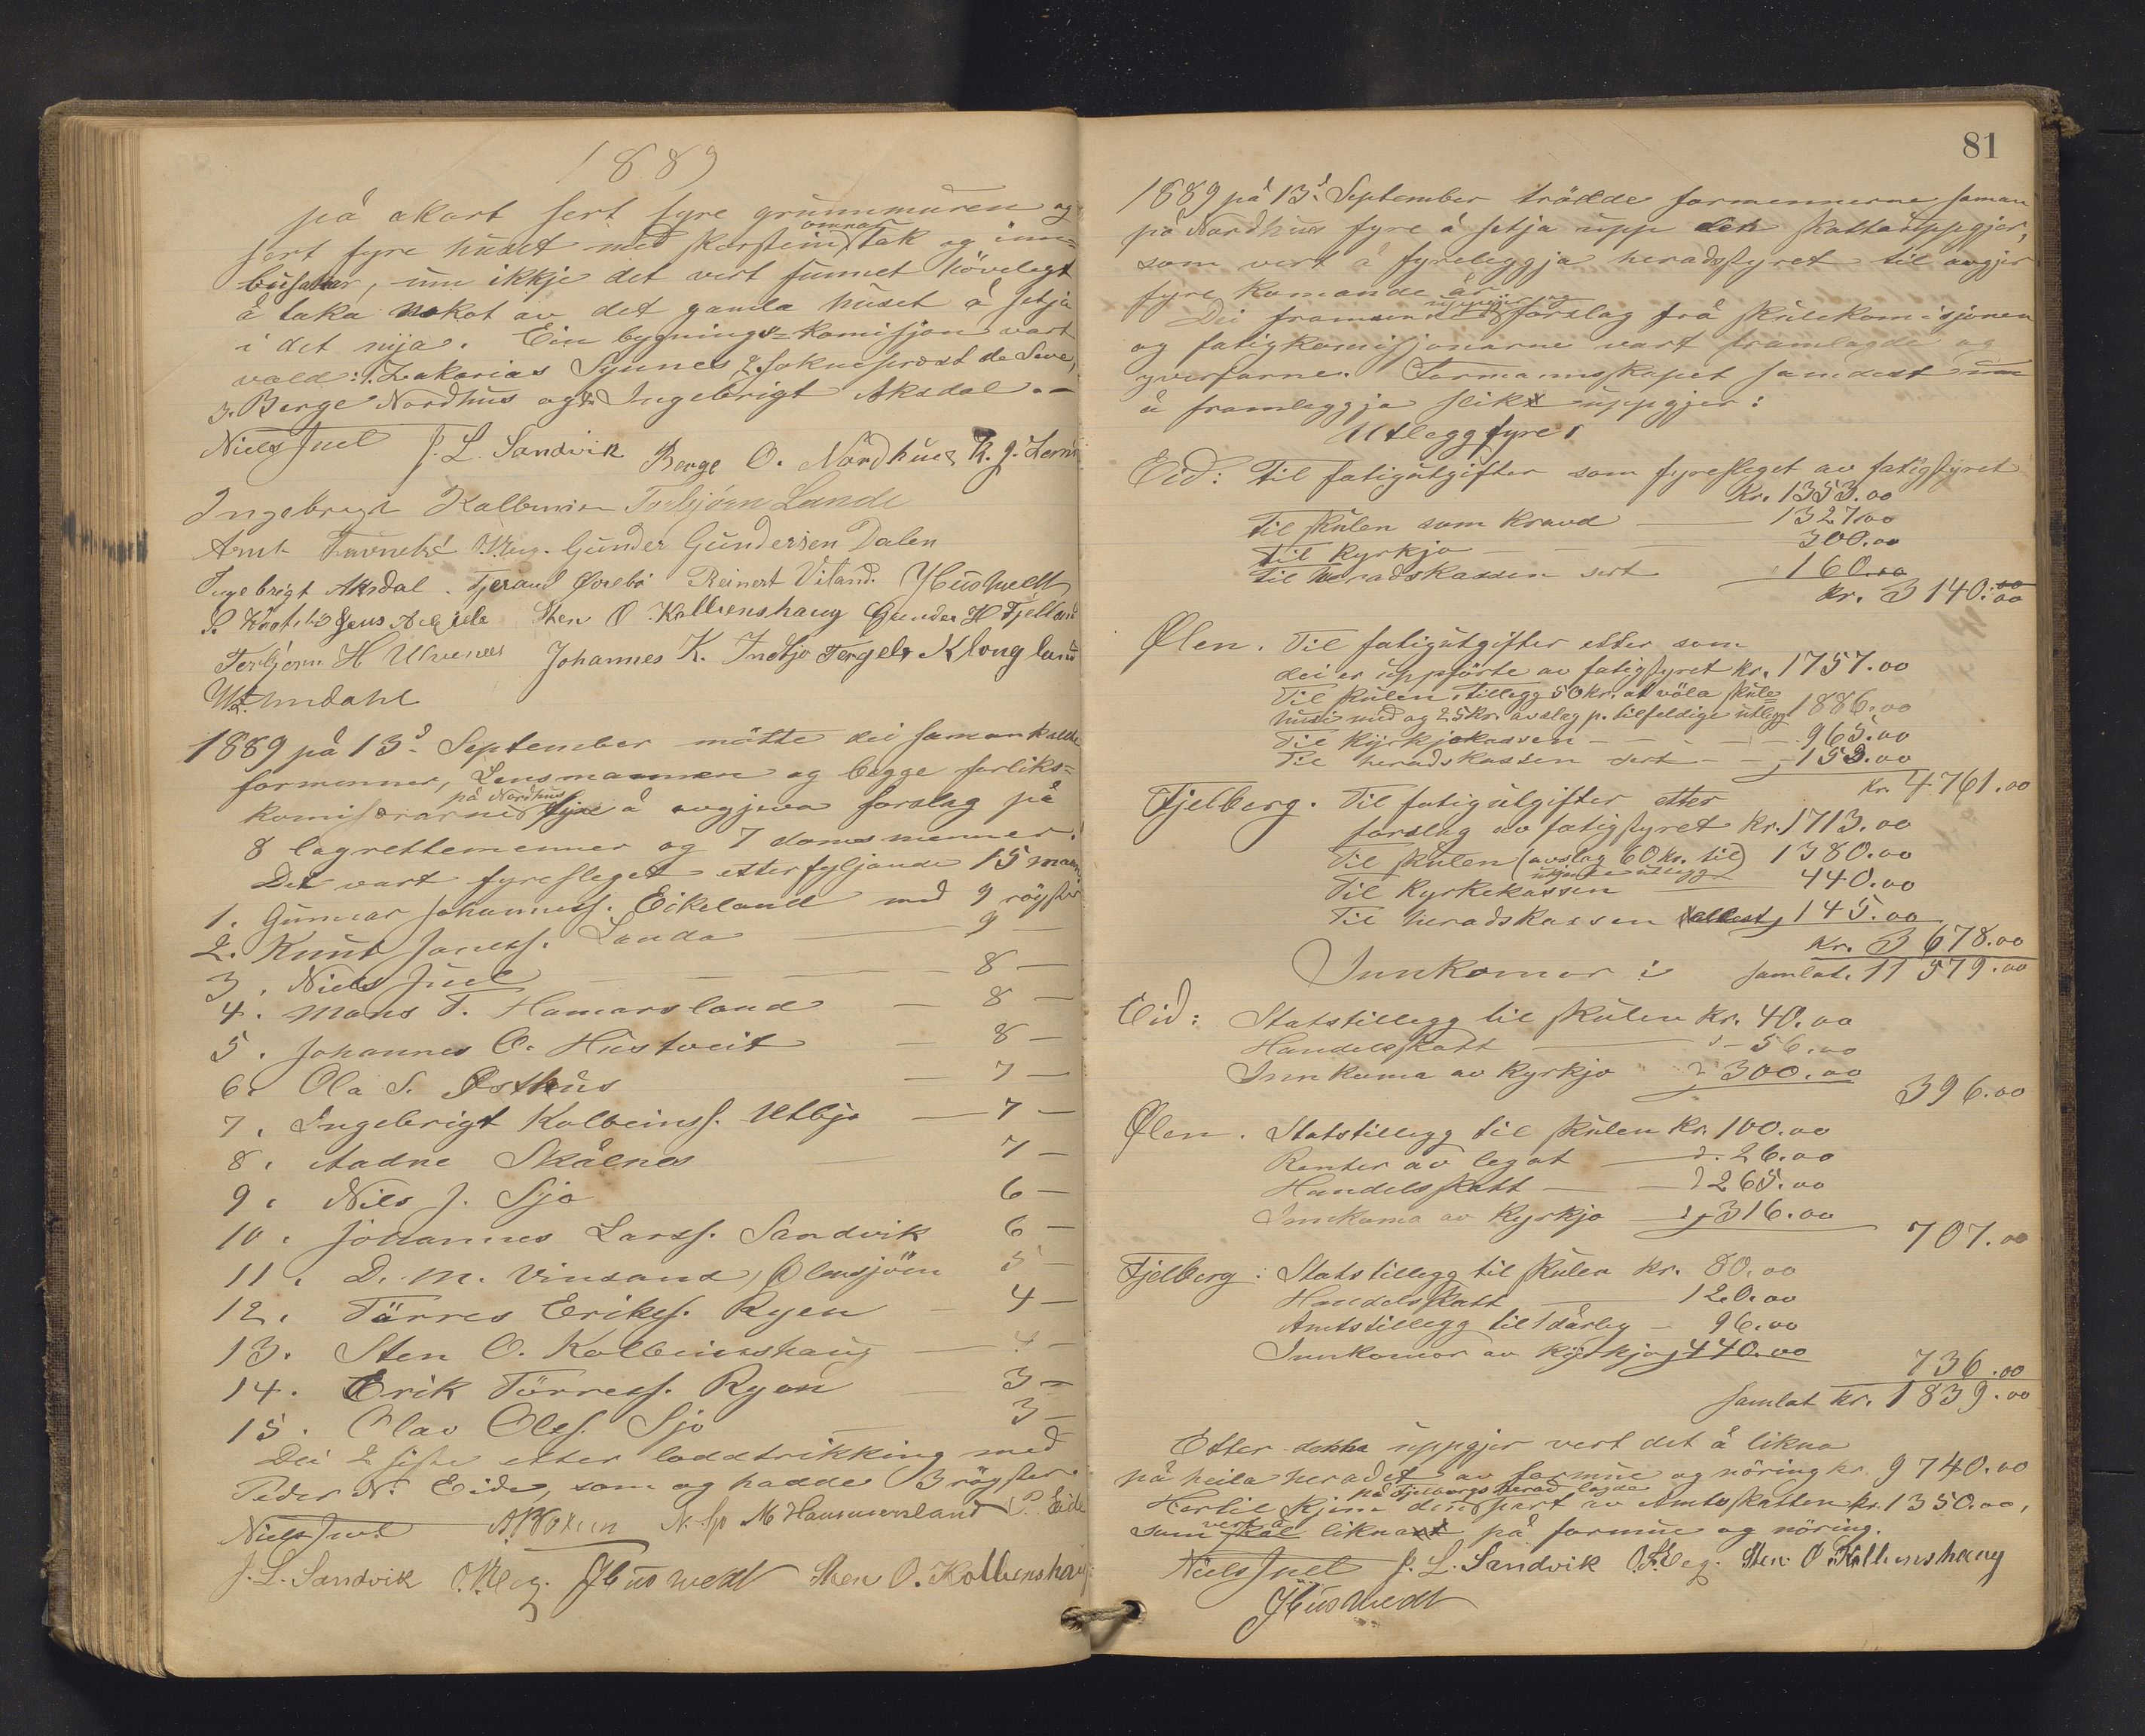 1889
på akort sert fyre grunnmuren og
sert fyre huset med skorstein omnar tak og inn-
busetnar, um ikkje det vert funnet hövelegt
å taka nokot av det gamla huset å setja
i det nyja. Ein bygnings-komisjon vart
vald: 1. Zakarias Synnes 2. sokneprest de Seve,
3. Berge Nordhus og 4. Ingebrigt Aksdal.
Niels Juel J. L. Sandvik Berge O. Nordhus K. J.
Ingebrigt Kallevik Torbjörn Lande
Arnt O. Vog. Gunder Gundersen Dalen
Ingebrigt Aksdal. Tjerand Övrebö Reinert Vitland. JHustvedt
Jens A Eide Sten O. Kolbenshaug Gunder H Fjelland
Torbjörn H Ulvenes Johannes K. Innbjo Tergels Klongland
Undahl
1889 på 13d September mötte dei samankalla
formenner, Lensmannen og begge forliks-
komisærarne på Nordhus fyre å avgjeva forslag på
8 lagrettemenner og 7 domsmenner.
Det vart fyresleget etterfyljande 15 mann:
1. Gunnar Johanness. Eikeland med 9 röyster
2. Knut Janess. Landa — 9 —
3. Niels Juel — 8 —
4. Mons T. Hamarsland — 8 —
5. Johannes O. Hustveit — 8 —
6. Ola S. Östhus — 7 —
7. Ingebrigt Kolbeinss. Utbjo — 7 —
8. Aadne Skålnes 7 —
9. Nils J. Sjo 6 —
10. Johannes Larss. Sandvik 6 —
11. D. M. Vinsand, Ölensjöen 5 —
12. Törres Erikss. Ryen — 4 —
13. Sten O. Kolbeinshaug — 4 —
14. Erik Törress. Ryen — 3 —
15. Olav Olss. Sjo — 3 —
Dei 2 siste etter loddtrikking med
Peder N. Eide, som og hadde 3 röyster.
Niels Juel N. Sjo M Hammersland P. Eide
J. L. Sandvik O. Vog. JHustvedt Sten O. Kolbenshaug
81
1889 på 13d September trödde formennerne saman
på Nordhus fyre å setja upp den skatteuppgjer,
som vert å fyreleggja heradsstyret til avgjer
fyre komande år.
Dei framsende uppgjer og forslag frå skulekomisjonen
og fatigkomisjonarne vart framlagde og
yverfarne. Formannskapet samdest um
å framleggja slikt uppgjer:
Utlegg fyre:
Eid: Til fatigutgifter som fyresleget av fatigstyret
Kr. 1353.00
Til skulen som kravd — 1327.00
Til kyrkjo — 300.00
Til heradskassen sert 160.00
Kr. 3140.00
Ølen. Til fatigutgifter etter som
dei er uppförte av fatigstyret kr. 1757.00
Til skulen, tillegg 50 kr. at völa skule-
husi med og 25 kr. avslag p. tilfeldige utlegg 1886.00
Til kyrkjekassen — 965.00
Til heradskassen sert — 153.00
kr. 4761.00
Fjelberg. Til fatigutgifter etter
forslag av fatigstyret kr. 1713.00
Til skulen (avslag 60 kr. til 1380.00
ukjende utlegg)
Til kyrkekassen — 440.00
Til heradskassen 145.00
Kr. 3678.00
Innkomor: samlat. 11579.00
Eid: Statstillegg til skulen kr. 40.00
Handelsskatt — 56.00
Innkoma av kyrkjo 300.00
396.00
Ølen. Statstillegg til skulen kr. 100.00
Renter av legat — 26.00
Handelsskatt — 265.00
Innkoma av kyrkjo — 316.00
707.00
Fjelberg: Statstillegg til skulen kr. 80.00
Handelsskatt — 120.00
Amtstillegg til 1 dårleg — 96.00
Innkomor av kyrkjo 440.00
736.00
samlat kr. 1839.00
Etter dekka uppgjer vert det å likna
på heila heradet av formue og nöring kr. 9740.00
Hertil kjem den på Fjelbergs herad lagde part av Amtsskatten kr. 1350.00,
som vert å liknast på formue og nöring.
Niels Juel J. L. Sandvik O. Vog. Sten O. Kolbenshaug
JHustvedt